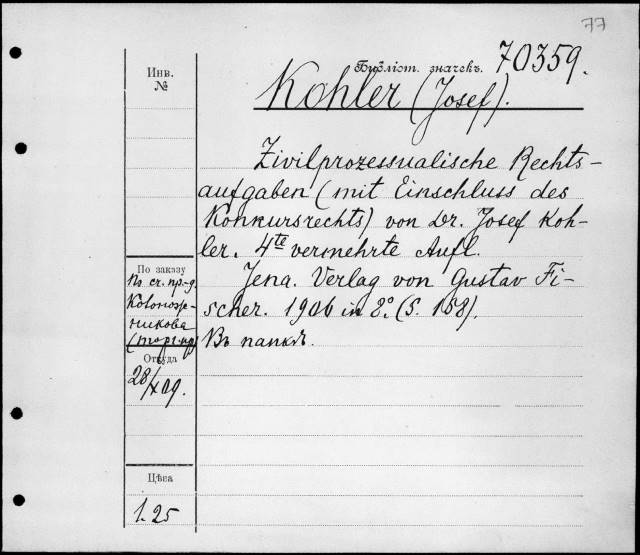 77
Инв.
№
Библіот. значекъ. 70359.
Kohler (Josef).
Zivilprozessualische Rechts-
aufgaben (mit Einschluss des
Konkursrechts) von Dr. Josef Koh-
ler. 4te vermehrte Aufl.
Jena. Verlag von Gustav Fi-
scher. 1906 in 8.° (S. 158).
Въ папкѣ.
По заказу
Кожевникова
Откуда
28/X 09.
Цѣна
1.25